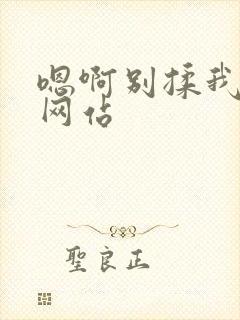 嗯啊别揉我
网佔
聖良正